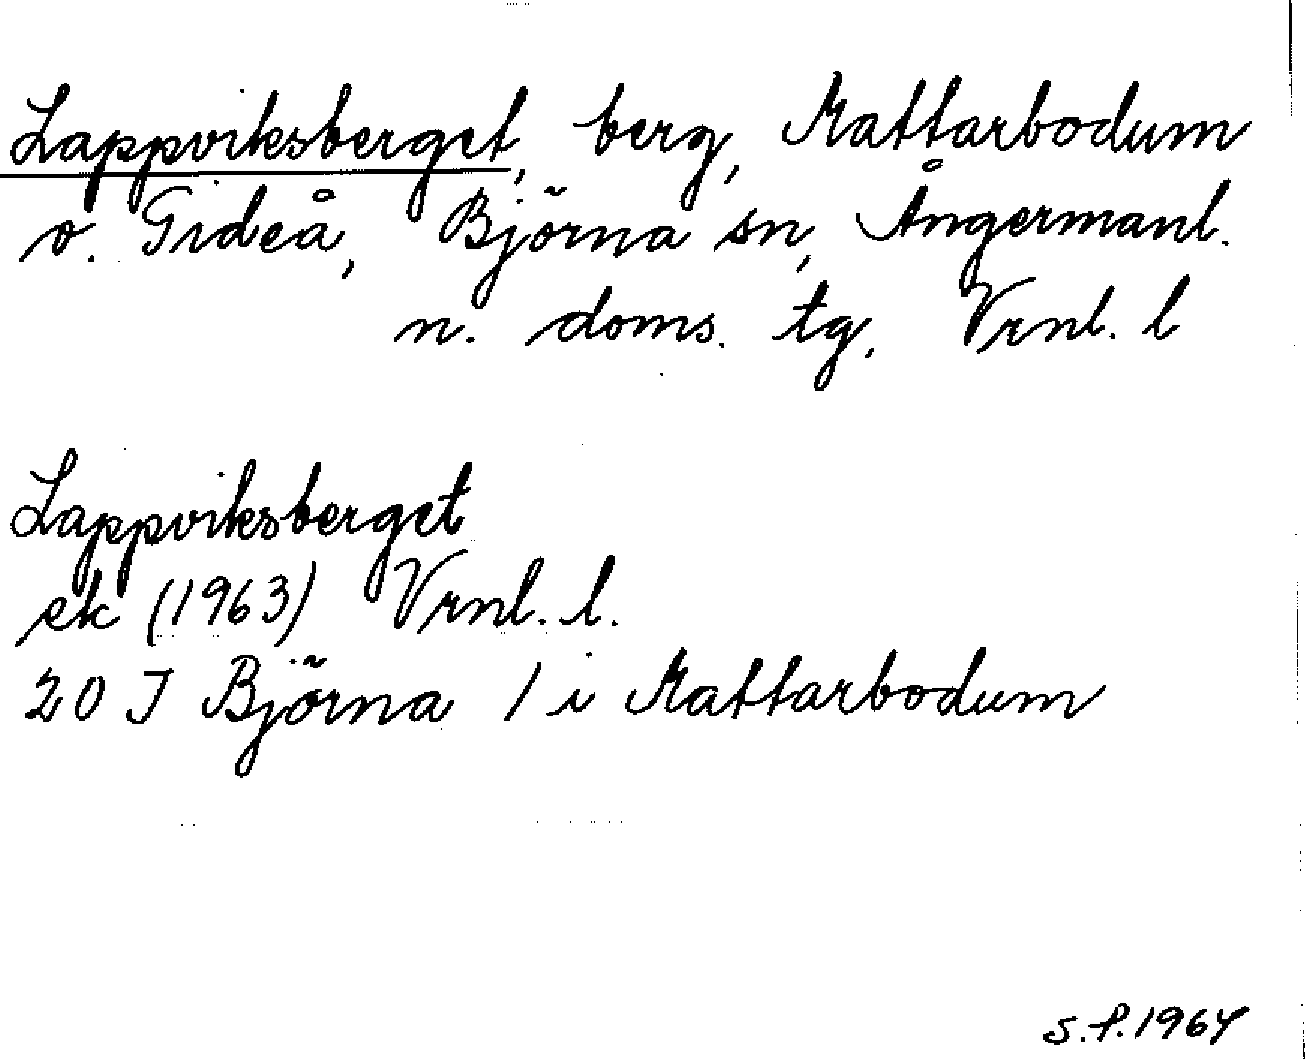 Lappviksberget, berg, Mattarbodum
o. Gideå, Björna sn, Ångermanl.
n. doms. tg, Vrnl. l
Lappviksberget
ek (1963) Vrnl. l.
20 J Björna 1 i Mattarbodum
S.P. 1964